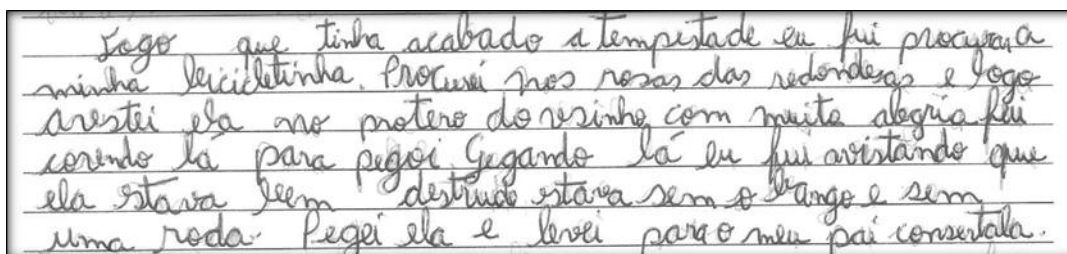 Logo que tinha acabado a tempestade eu fui procurar a
minha bicicletinha. Procurei nos rosas das redondesas e logo
avestei ela no protero do vesinho com muita alegria fui
corendo lá para pegoi Gegando lá eu fui avistando que
ela stava bem destruido estava sem o bango e sem
uma roda. Pegei ela e levei para o meu pai consertala.